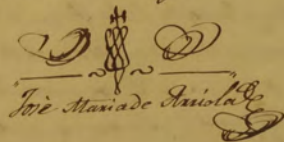 Jose Maria de Arriola